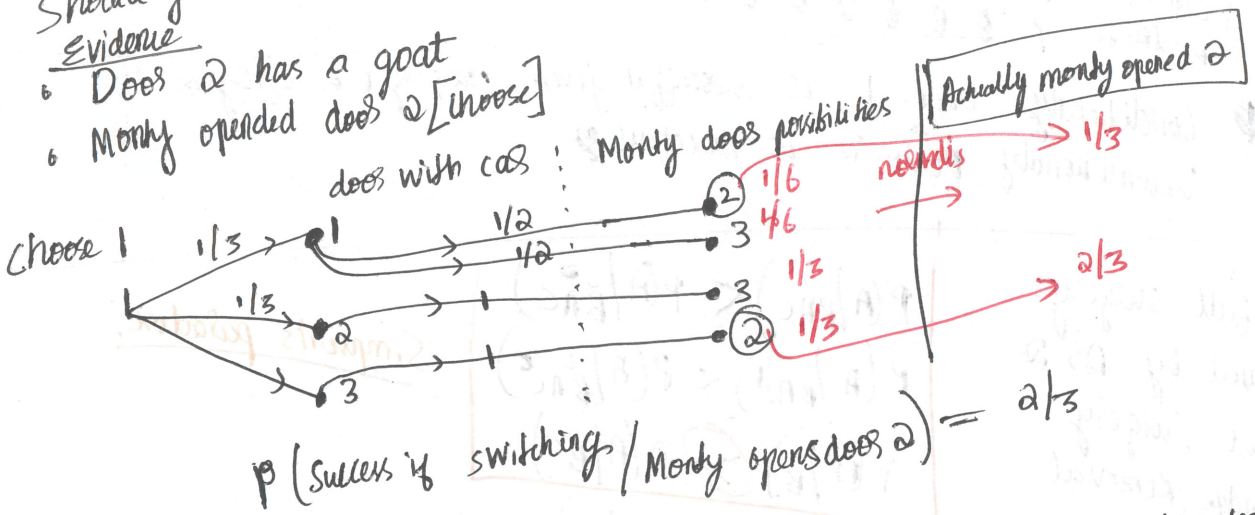 Should
Evidence
• Door 2 has a goat
• Monty opended door 2 [choose]
door with car : Monty door possibilities
Actually monty opened 2
choose 1
1
1/3
1
1/2
2
1/6
1/3
1/2
3
1/6
1/3
2
1
3
1/3
2/3
3
1
2
1/3
P (Success if switching / Monty opens door 2) = 2/3